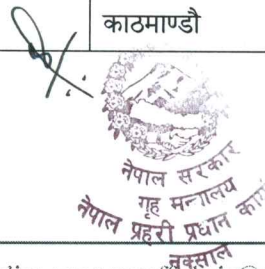 काठमाण्डौ
नेपाल सरकार
गृह मन्त्रालय
नेपाल प्रहरी प्रधान
नक्साल